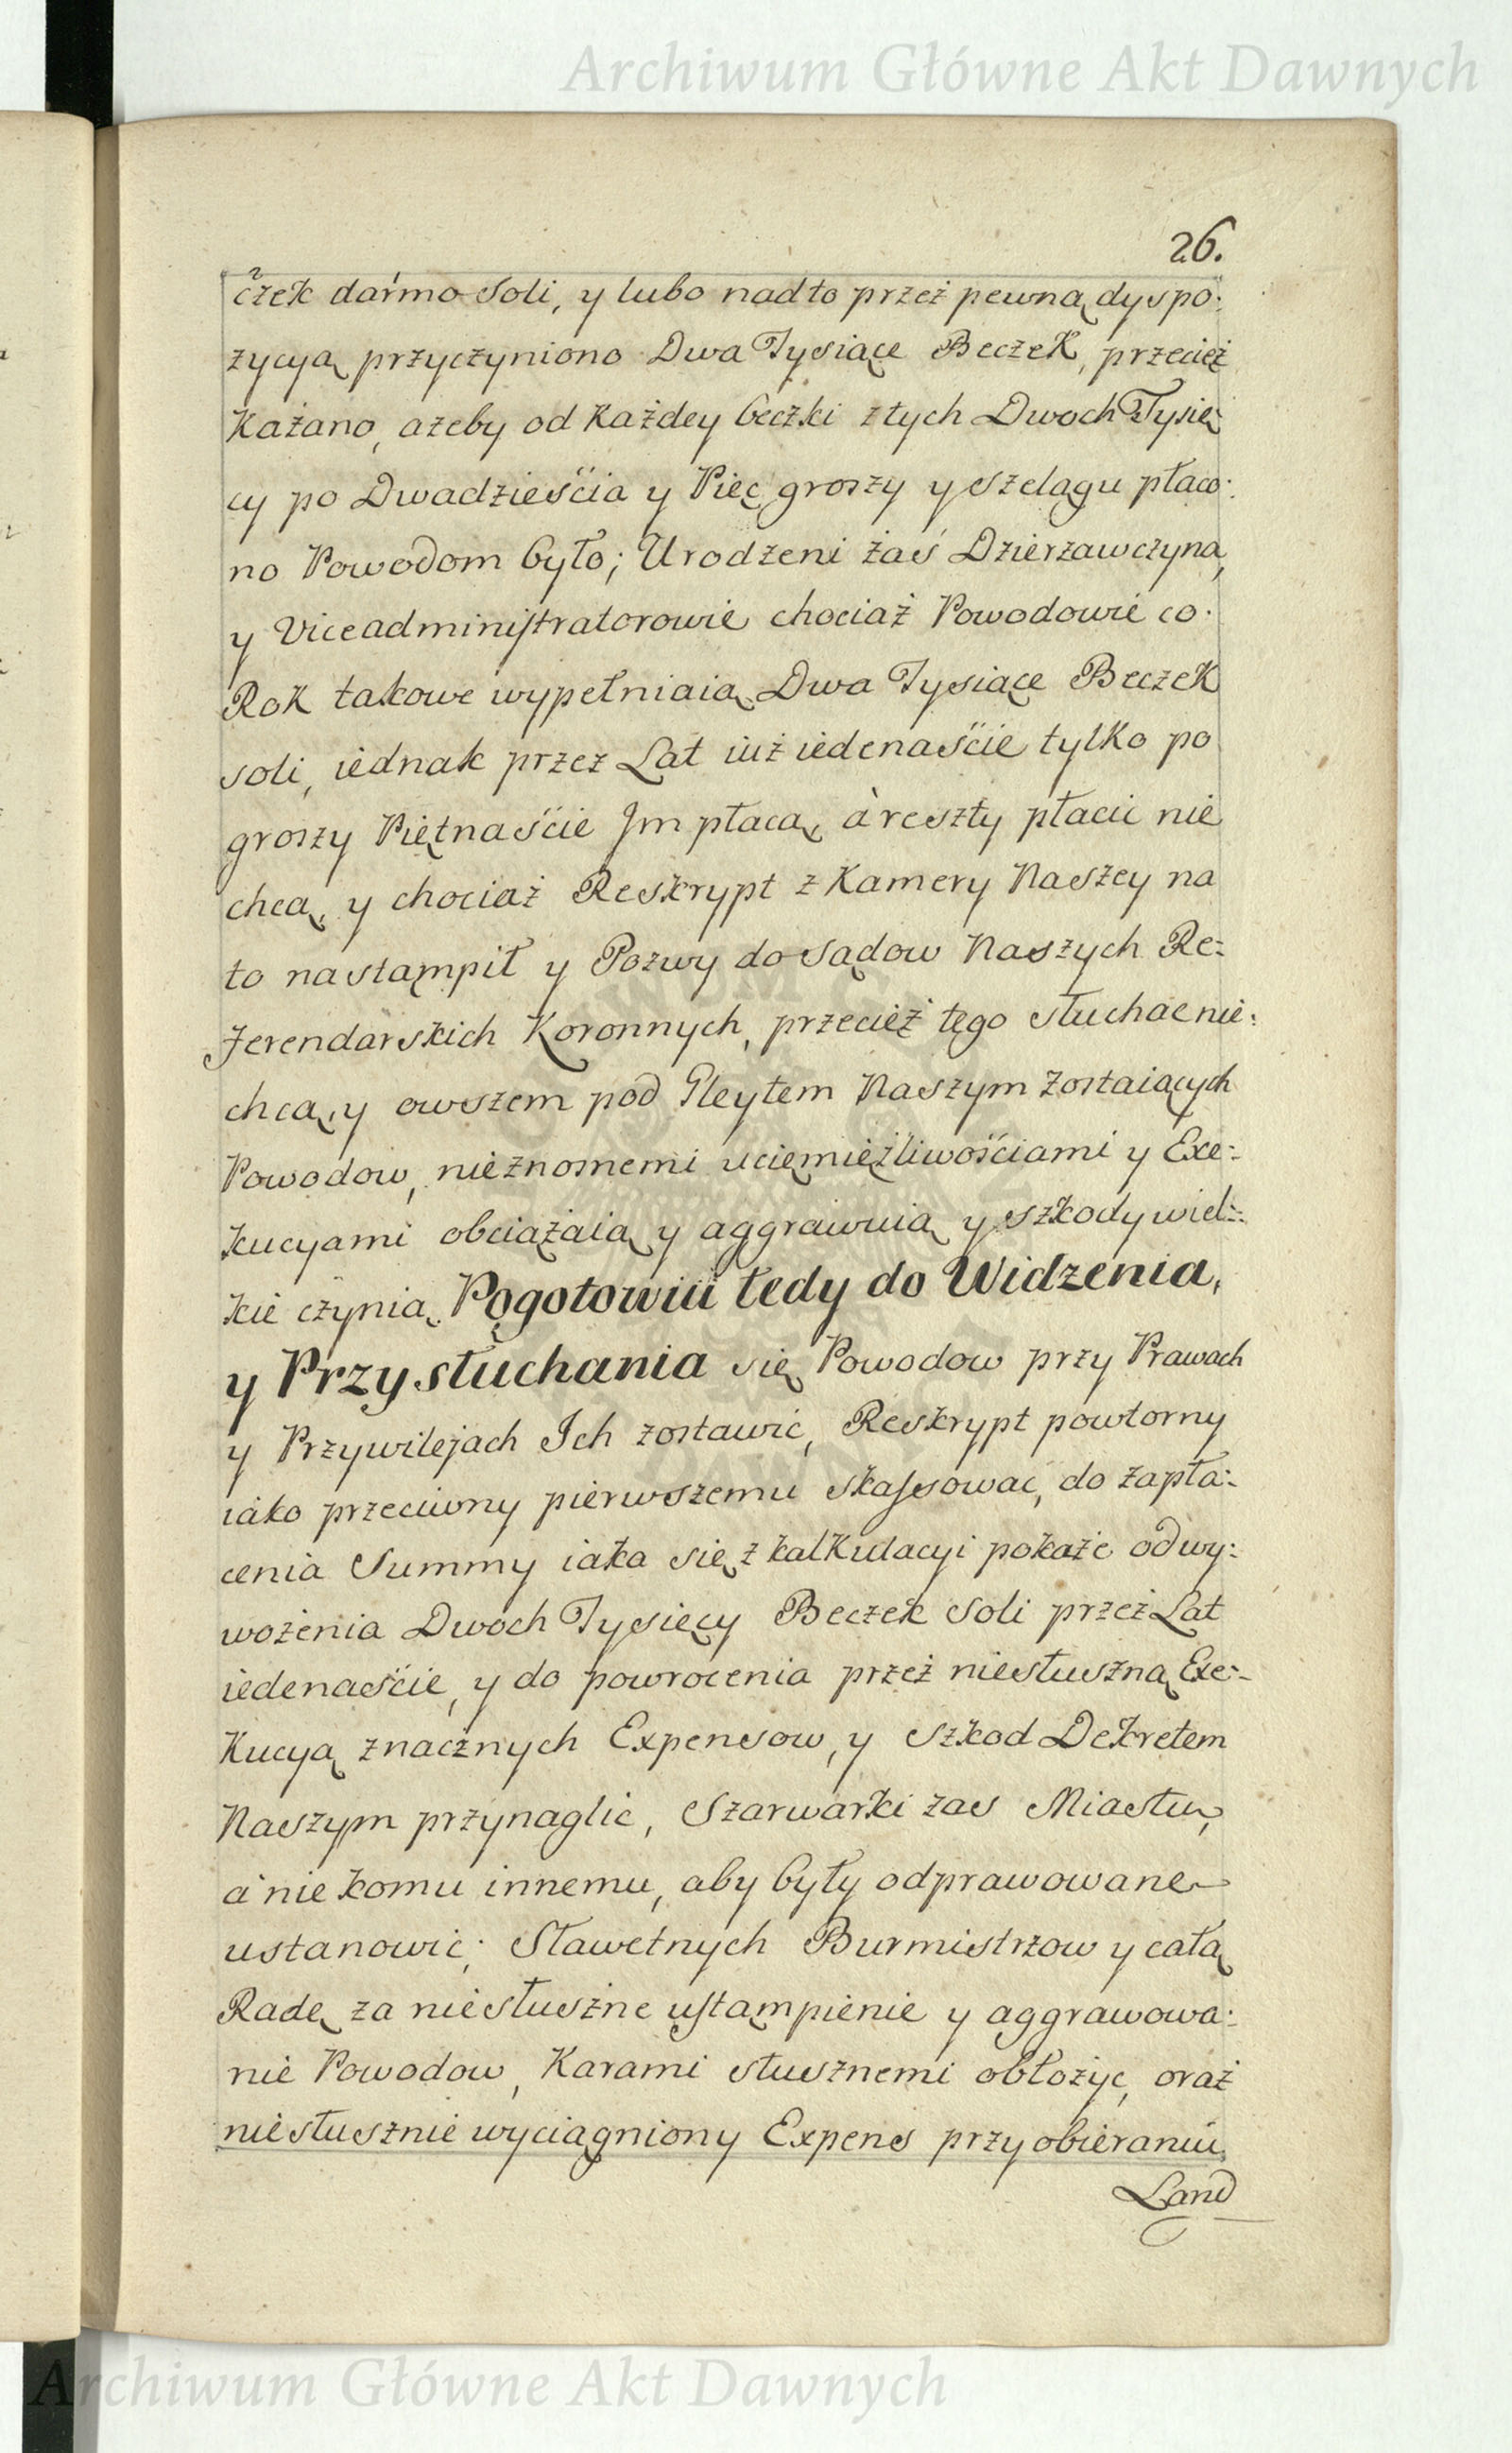 Archiwum Główne Akt Dawnych
26.
czek darmo soli, y lubo nadto przez pewną dyspo:
zycyą przyczyniono Dwa Tysiące Beczek, przecież
Każano, ażeby od Każdey beczki z tych Dwoch Tysię
cy po Dwadzieścia y Pięc groszy y szelągu płaco:
no Powodom było; Urodzeni żaś Dzierzawczyna,
y Viceadministratorowie chociaż Powodowie co:
Rok takowe wypełniaią Dwa Tysiące Beczek
soli, iednak przez Lat iuż iedenaście tylko po
groszy Piętnaście Jm płacą, à reszty płacic nie
chcą, y chociaż Reskrypt z Kamery Naszey na
to nastąmpił y Pozwy do Sądow Naszych Re:
ferendarskich Koronnych, przecież tego słuchac nie:
chcą, y owszem pod Gleytem Naszym zostaiących
Powodow, nieznosnemi ucięmięźliwościami y Exe:
kucyami obciążaią y aggrawuią y szkody wiel:
kie czynią. Pogotowiu tedy do Widzenia,
y Przysłuchania się Powodow przy Prawach
y Przywilejach Ich zostawić, Reskrypt powtorny
iako przeciwny pierwszemu skassować, do zapła:
cenia Summy iaka się z kalkulacyi pokaże od wy:
wożenia Dwoch Tysięcy Beczek Soli przez Lat
iedenaście, y do powrocenia przez niesłuszną Exe:
Kucyą znacznych Expensow, y szkod Dekretem
Naszym przynaglic, Szarwarki zas Miastu,
à nie komu innemu, aby były odprawowane
ustanowic; Sławetnych Burmistrzow y całą
Radę za niesłuszne ustąmpienie y aggrawowa:
nie Powodow, Karami słusznemi obłożyc, oraz
niesłusznie wyciągniony Expens przy obieraniu
Land
Archiwum Główne Akt Dawnych